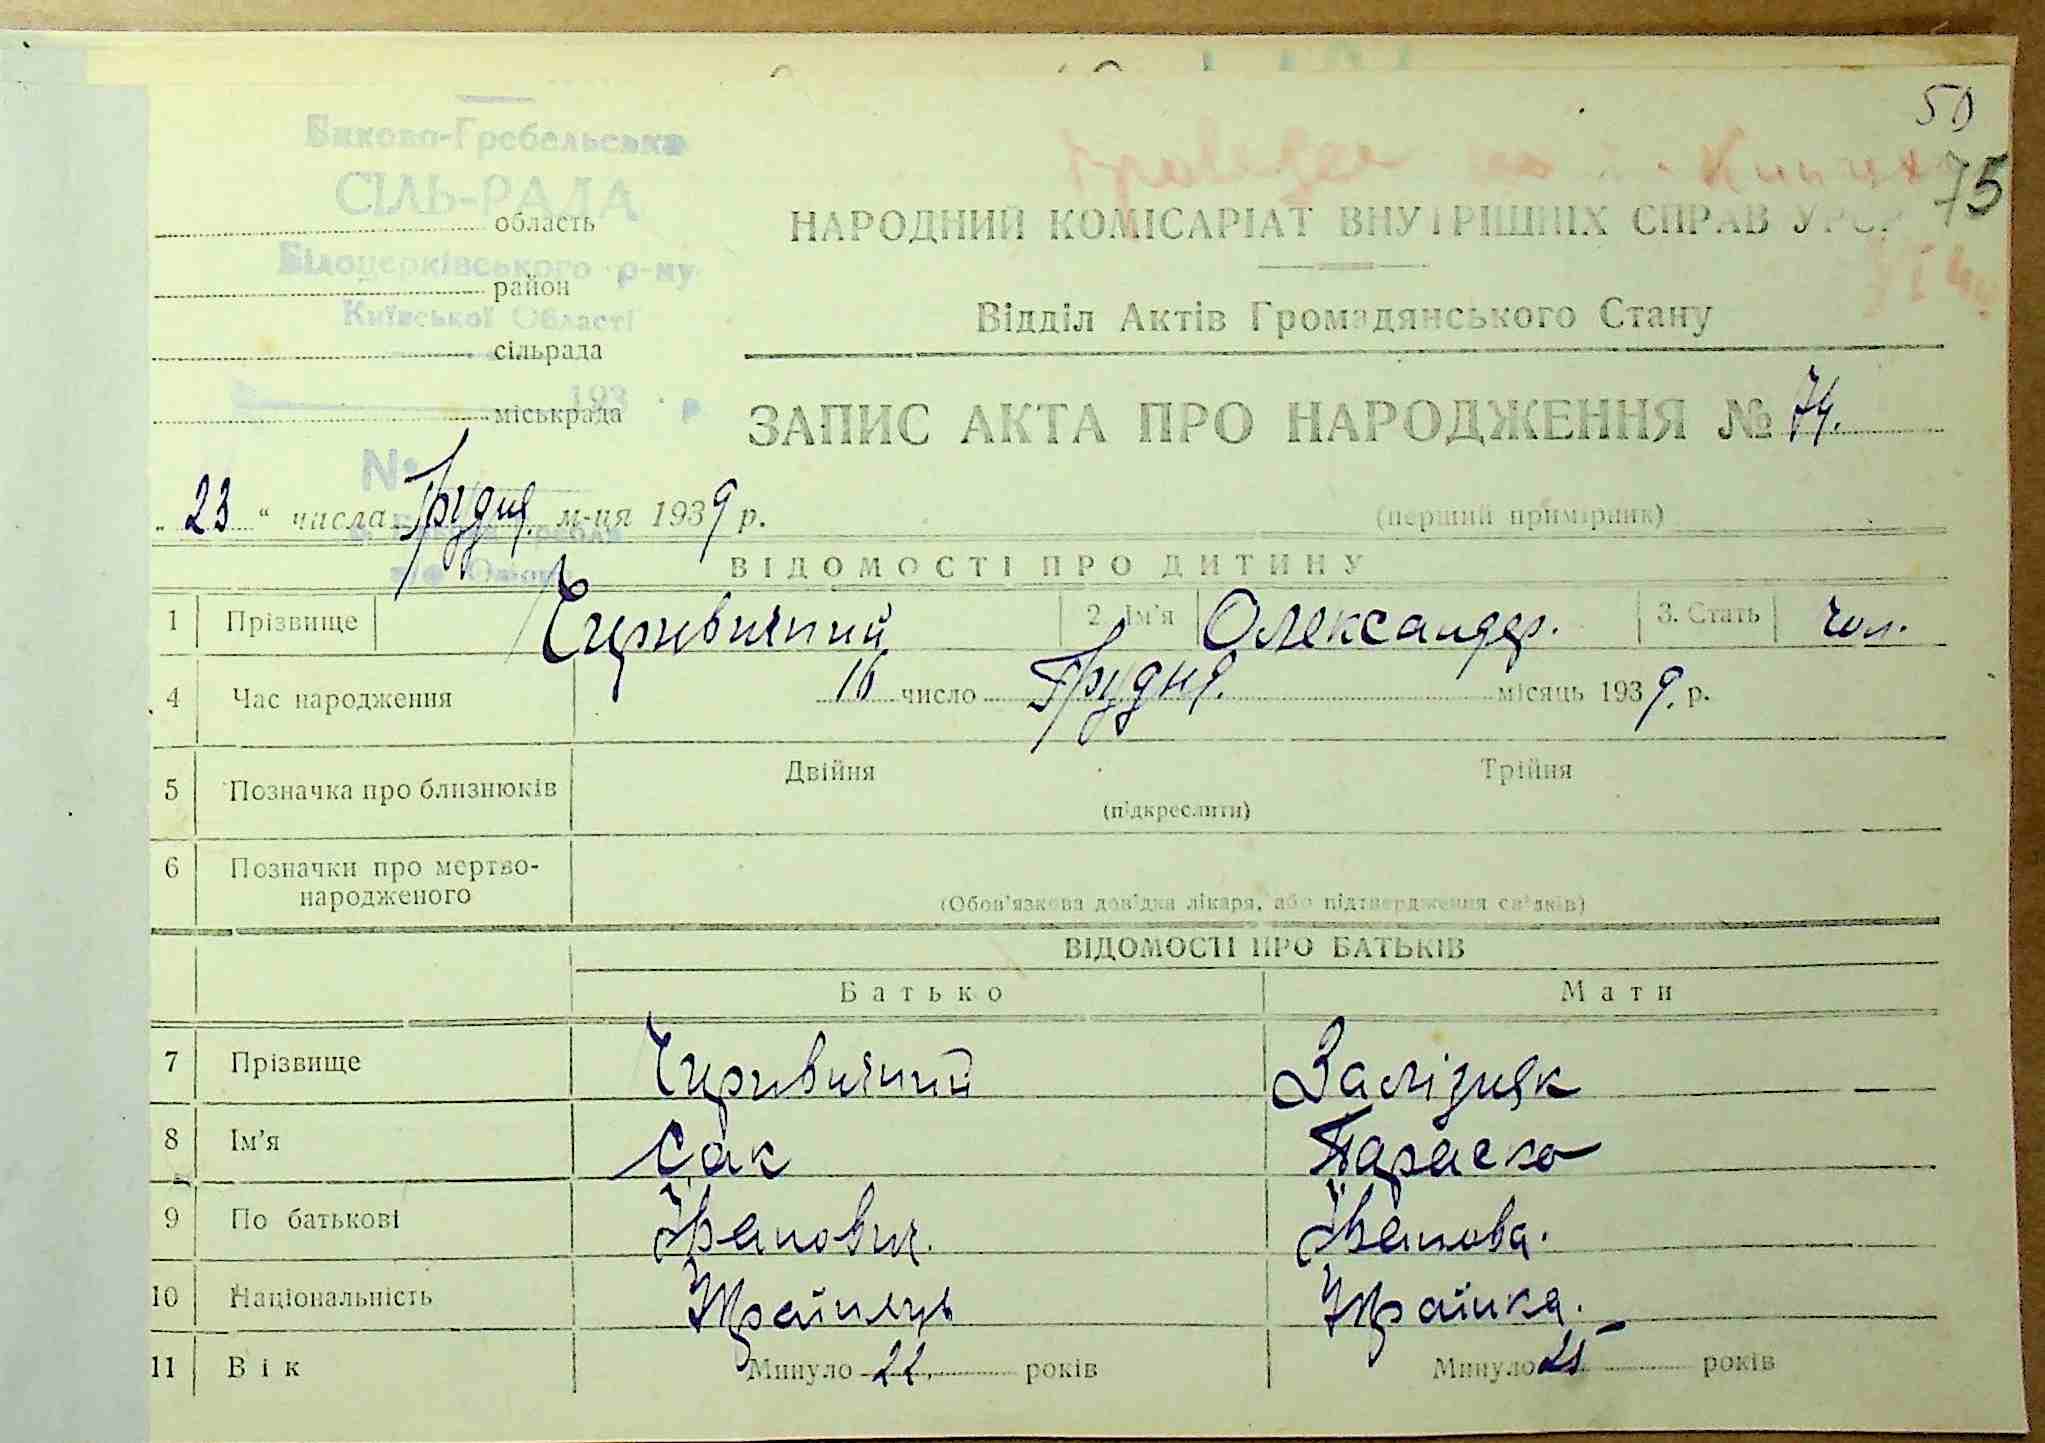 50
75
Биково-Гребельська
СІЛЬ-РАДА
область
Білоцерківського р-ну
район
Київської Області
сільрада
193 р
міськрада
№
НАРОДНИЙ КОМІСАРІАТ ВНУТРІШНІХ СПРАВ УРСР
Відділ Актів Громадянського Стану
ЗАПИС АКТА ПРО НАРОДЖЕННЯ № 74.
„ 23 “ числа Грудня. м-ця 1939 р.
(перший примірник)
ВІДОМОСТІ ПРО ДИТИНУ
1 Прізвище Чиривичний 2. Ім'я Олександер. 3. Стать чол.
4 Час народження 16 число Грудня. місяць 1939. р.
5 Позначка про близнюків Двійня Трійня
(підкреслити)
6 Позначки про мертво-
народженого
(Обов'язкова довідка лікаря, або підтвердження свідків)
ВІДОМОСТІ ПРО БАТЬКІВ
Батько Мати
7 Прізвище Чиривичний Залізняк
8 Ім'я Сак Параска
9 По батькові Іванович. Іванова.
10 Національність Українець Українка.
11 Вік Минуло 22. років Минуло 25 років